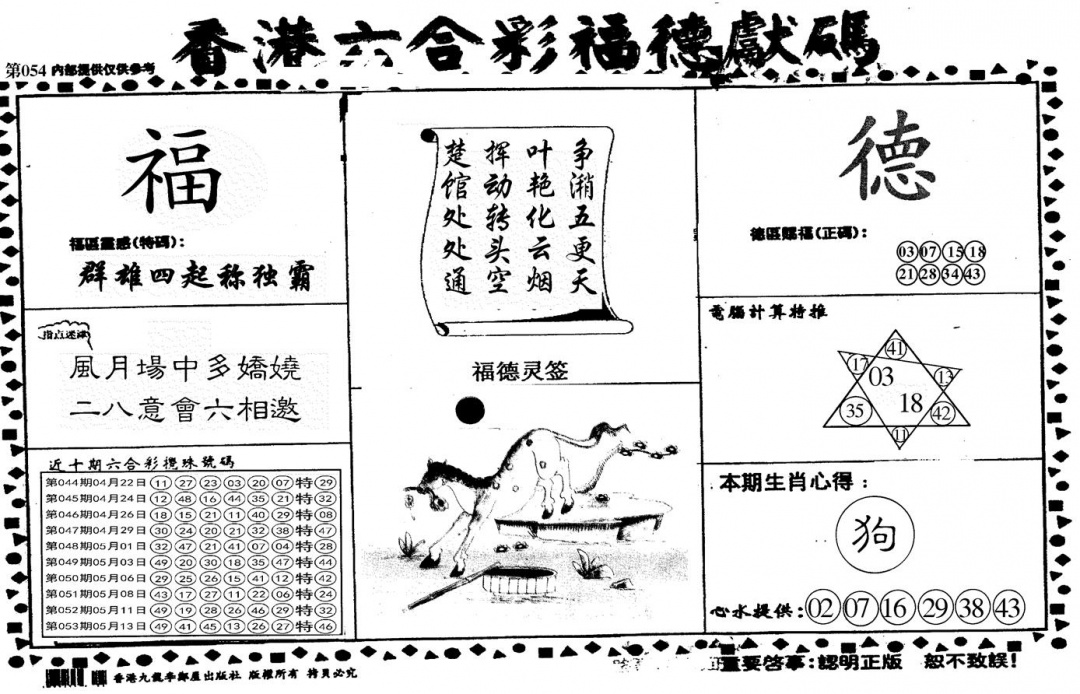 香港六合彩福德獻碼
第054 內部提供仅供参考
福
福區靈感(特碼):
群雄四起称独霸
指点迷津
風月場中多嬌嬈
二八意會六相邀
近十期六合彩攪珠號碼
第044期04月22日 11 27 23 03 20 07 特 29
第045期04月24日 12 48 16 44 35 21 特 32
第046期04月26日 18 15 21 11 40 29 特 08
第047期04月29日 30 24 20 21 32 38 特 47
第048期05月01日 32 47 21 41 07 04 特 28
第049期05月03日 49 20 30 18 35 47 特 44
第050期05月06日 29 25 26 15 41 12 特 42
第051期05月08日 43 17 27 11 22 06 特 24
第052期05月11日 49 19 28 26 46 29 特 32
第053期05月13日 49 41 45 13 26 27 特 46
争潲五更天
叶艳化云烟
挥动转头空
楚馆处处通
福德灵签
德
德區賜福(正碼):
03 07 15 18
21 28 34 43
電腦計算特推
41
17
03
13
35
18
42
11
本期生肖心得:
狗
心水提供: 02 07 16 29 38 43
香港九龍李鄭屋出版社 版權所有 拷貝必究
重要啓事:認明正版 恕不致誤!